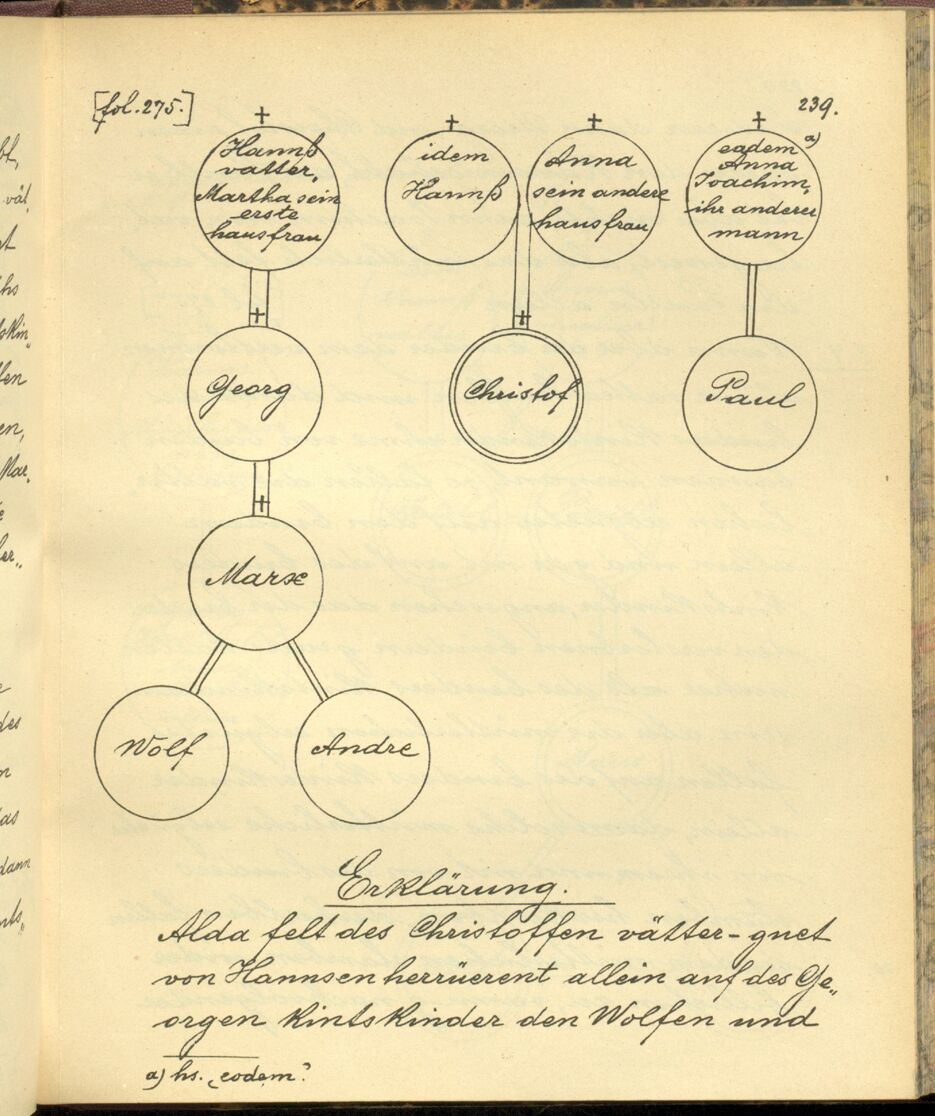 [fol. 275.]
239.
Hannß
vatter,
Martha sein
erste
hausfrau
idem
Hannß
Anna
sein andere
hausfrau
eadem a)
Anna
Joachim,
ihr anderer
mann
Georg
Christof
Paul
Marx
Wolf
Andre
Erklärung.
Alda felt des Christoffen vätter-guet
von Hannsen herrüerent allein auf des Ge„
orgen kintskinder den Wolfen und
a) hs. „eodem"?